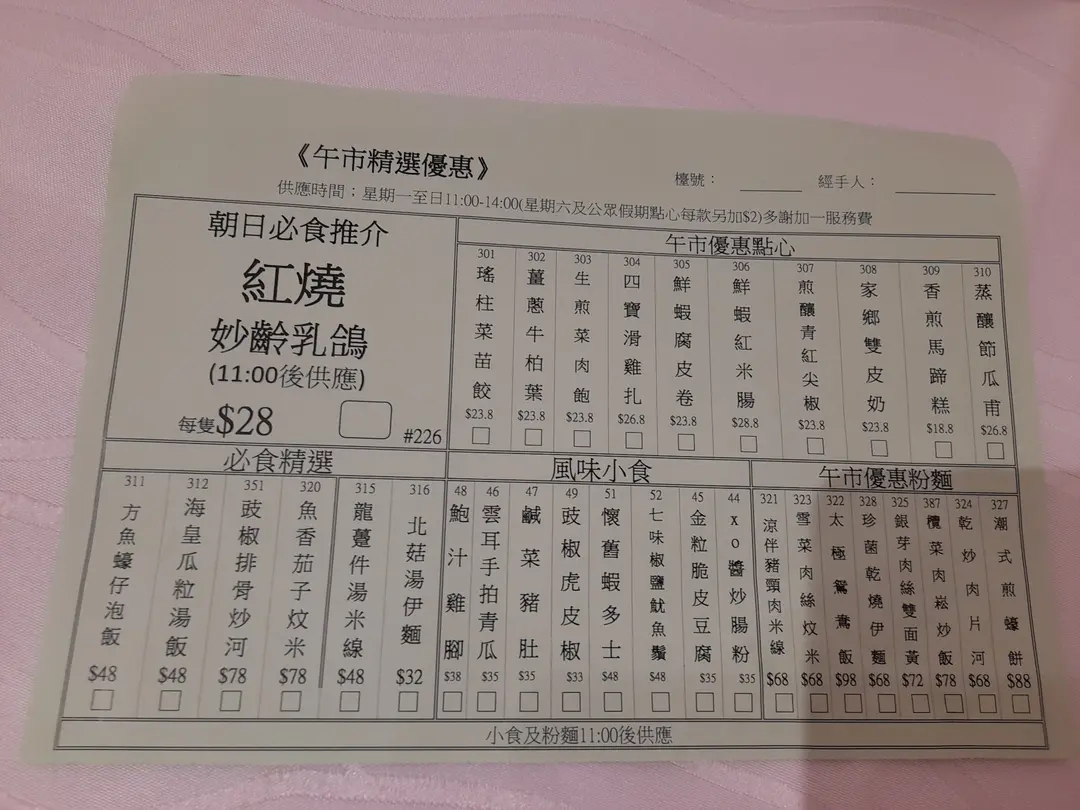 《午市精選優惠》
檯號：
經手人：
供應時間；星期一至日11:00-14:00(星期六及公眾假期點心每款另加$2)多謝加一服務費
朝日必食推介
紅燒
妙齡乳鴿
(11:00後供應)
每隻$28
#226
午市優惠點心
301 瑤柱菜苗餃 $23.8
302 薑蔥牛柏葉 $23.8
303 生煎菜肉飽 $23.8
304 四寶滑雞扎 $26.8
305 鮮蝦腐皮卷 $23.8
306 鮮蝦紅米腸 $28.8
307 煎釀青紅尖椒 $23.8
308 家鄉雙皮奶 $23.8
309 香煎馬蹄糕 $18.8
310 蒸釀節瓜甫 $26.8
必食精選
311 方魚蠔仔泡飯 $48
312 海皇瓜粒湯飯 $48
351 豉椒排骨炒河 $78
320 魚香茄子炆米 $78
315 龍躉件湯米線 $48
316 北菇湯伊麵 $32
風味小食
48 鮑汁雞腳 $38
46 雲耳手拍青瓜 $35
47 鹹菜豬肚 $35
49 豉椒虎皮椒 $33
51 懷舊蝦多士 $48
52 七味椒鹽魷魚鬚 $48
45 金粒脆皮豆腐 $35
44 xo醬炒腸粉 $35
午市優惠粉麵
321 涼伴豬頸肉米線 $68
323 雪菜肉絲炆米 $68
322 太極鴛鴦飯 $98
328 珍菌乾燒伊麵 $68
325 銀芽肉絲雙面黃 $72
387 欖菜肉崧炒飯 $78
324 乾炒肉片河 $68
327 潮式煎蠔餅 $88
小食及粉麵11:00後供應